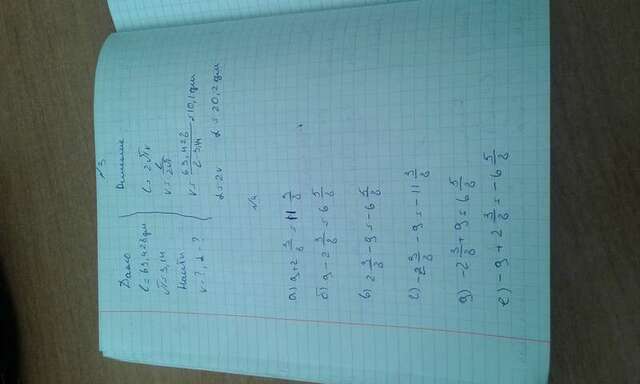 №3
Дано
l = 63,428 дм
π = 3,14
Найти
r = ?, d - ?
Решение
l = 2πr
r = l/2π
r = 63,428/2·3,14 = 10,1 дм
d = 2r d = 20,2 дм
№4
а) 9 + 2 3/8 = 11 3/8
б) 9 - 2 3/8 = 6 5/8
в) 2 3/8 - 9 = -6 5/8
г) -2 3/8 - 9 = -11 3/8
д) -2 3/8 + 9 = 6 5/8
е) - 9 + 2 3/8 = -6 5/8